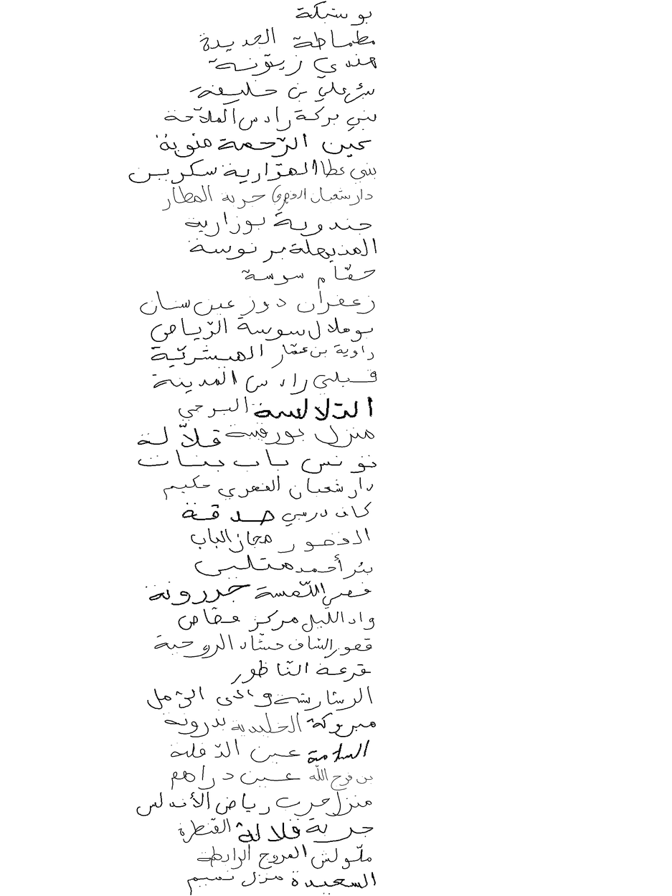 بوشبكة
مطماطة الجديدة
هندي زيتونة
بئر علي بن خليفة
بني بركة رادس الملاحة
عين الرّحمة منوبة
بني عطا الهزارية سكرين
دار شعبان الفهري حربة العطار
جندوبة بوزارية
المذيهلة برنوسة
حمّام سوسة
زعفران دوز عين سنان
بوهلال سوسة الرّياض
زاوية بن عمّار المبشريّة
قبلي رادس المدينة
الثلالسة البرجي
منزل بورقيبة قلاّلة
تونس باب بنات
دار شعبان الفهري حكيم
كاف دربي صدقة
القصور مجاز الباب
بئر أحمد متلين
خمسة جرزونة
واد الليل مركز عقاص
قصور الساف حشّاد الروحية
قرعة الناظور
وادي الرّمل
مبروكة الحليمة بدرونة
السلامة عين الدّفلة
بن فرج الله عين دراهم
منزل حرب رياض الأندلس
جربة قلالة القنطرة
ملّولش المروج الرابطة
السعيدة منزل تميم